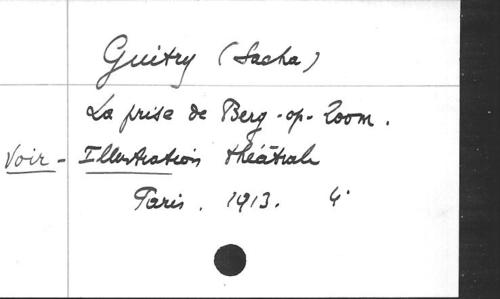 Guitry (Sacha)
La prise de Berg-op-Zoom.
Voir - Illustration théâtrale
Paris. 1913. 4°